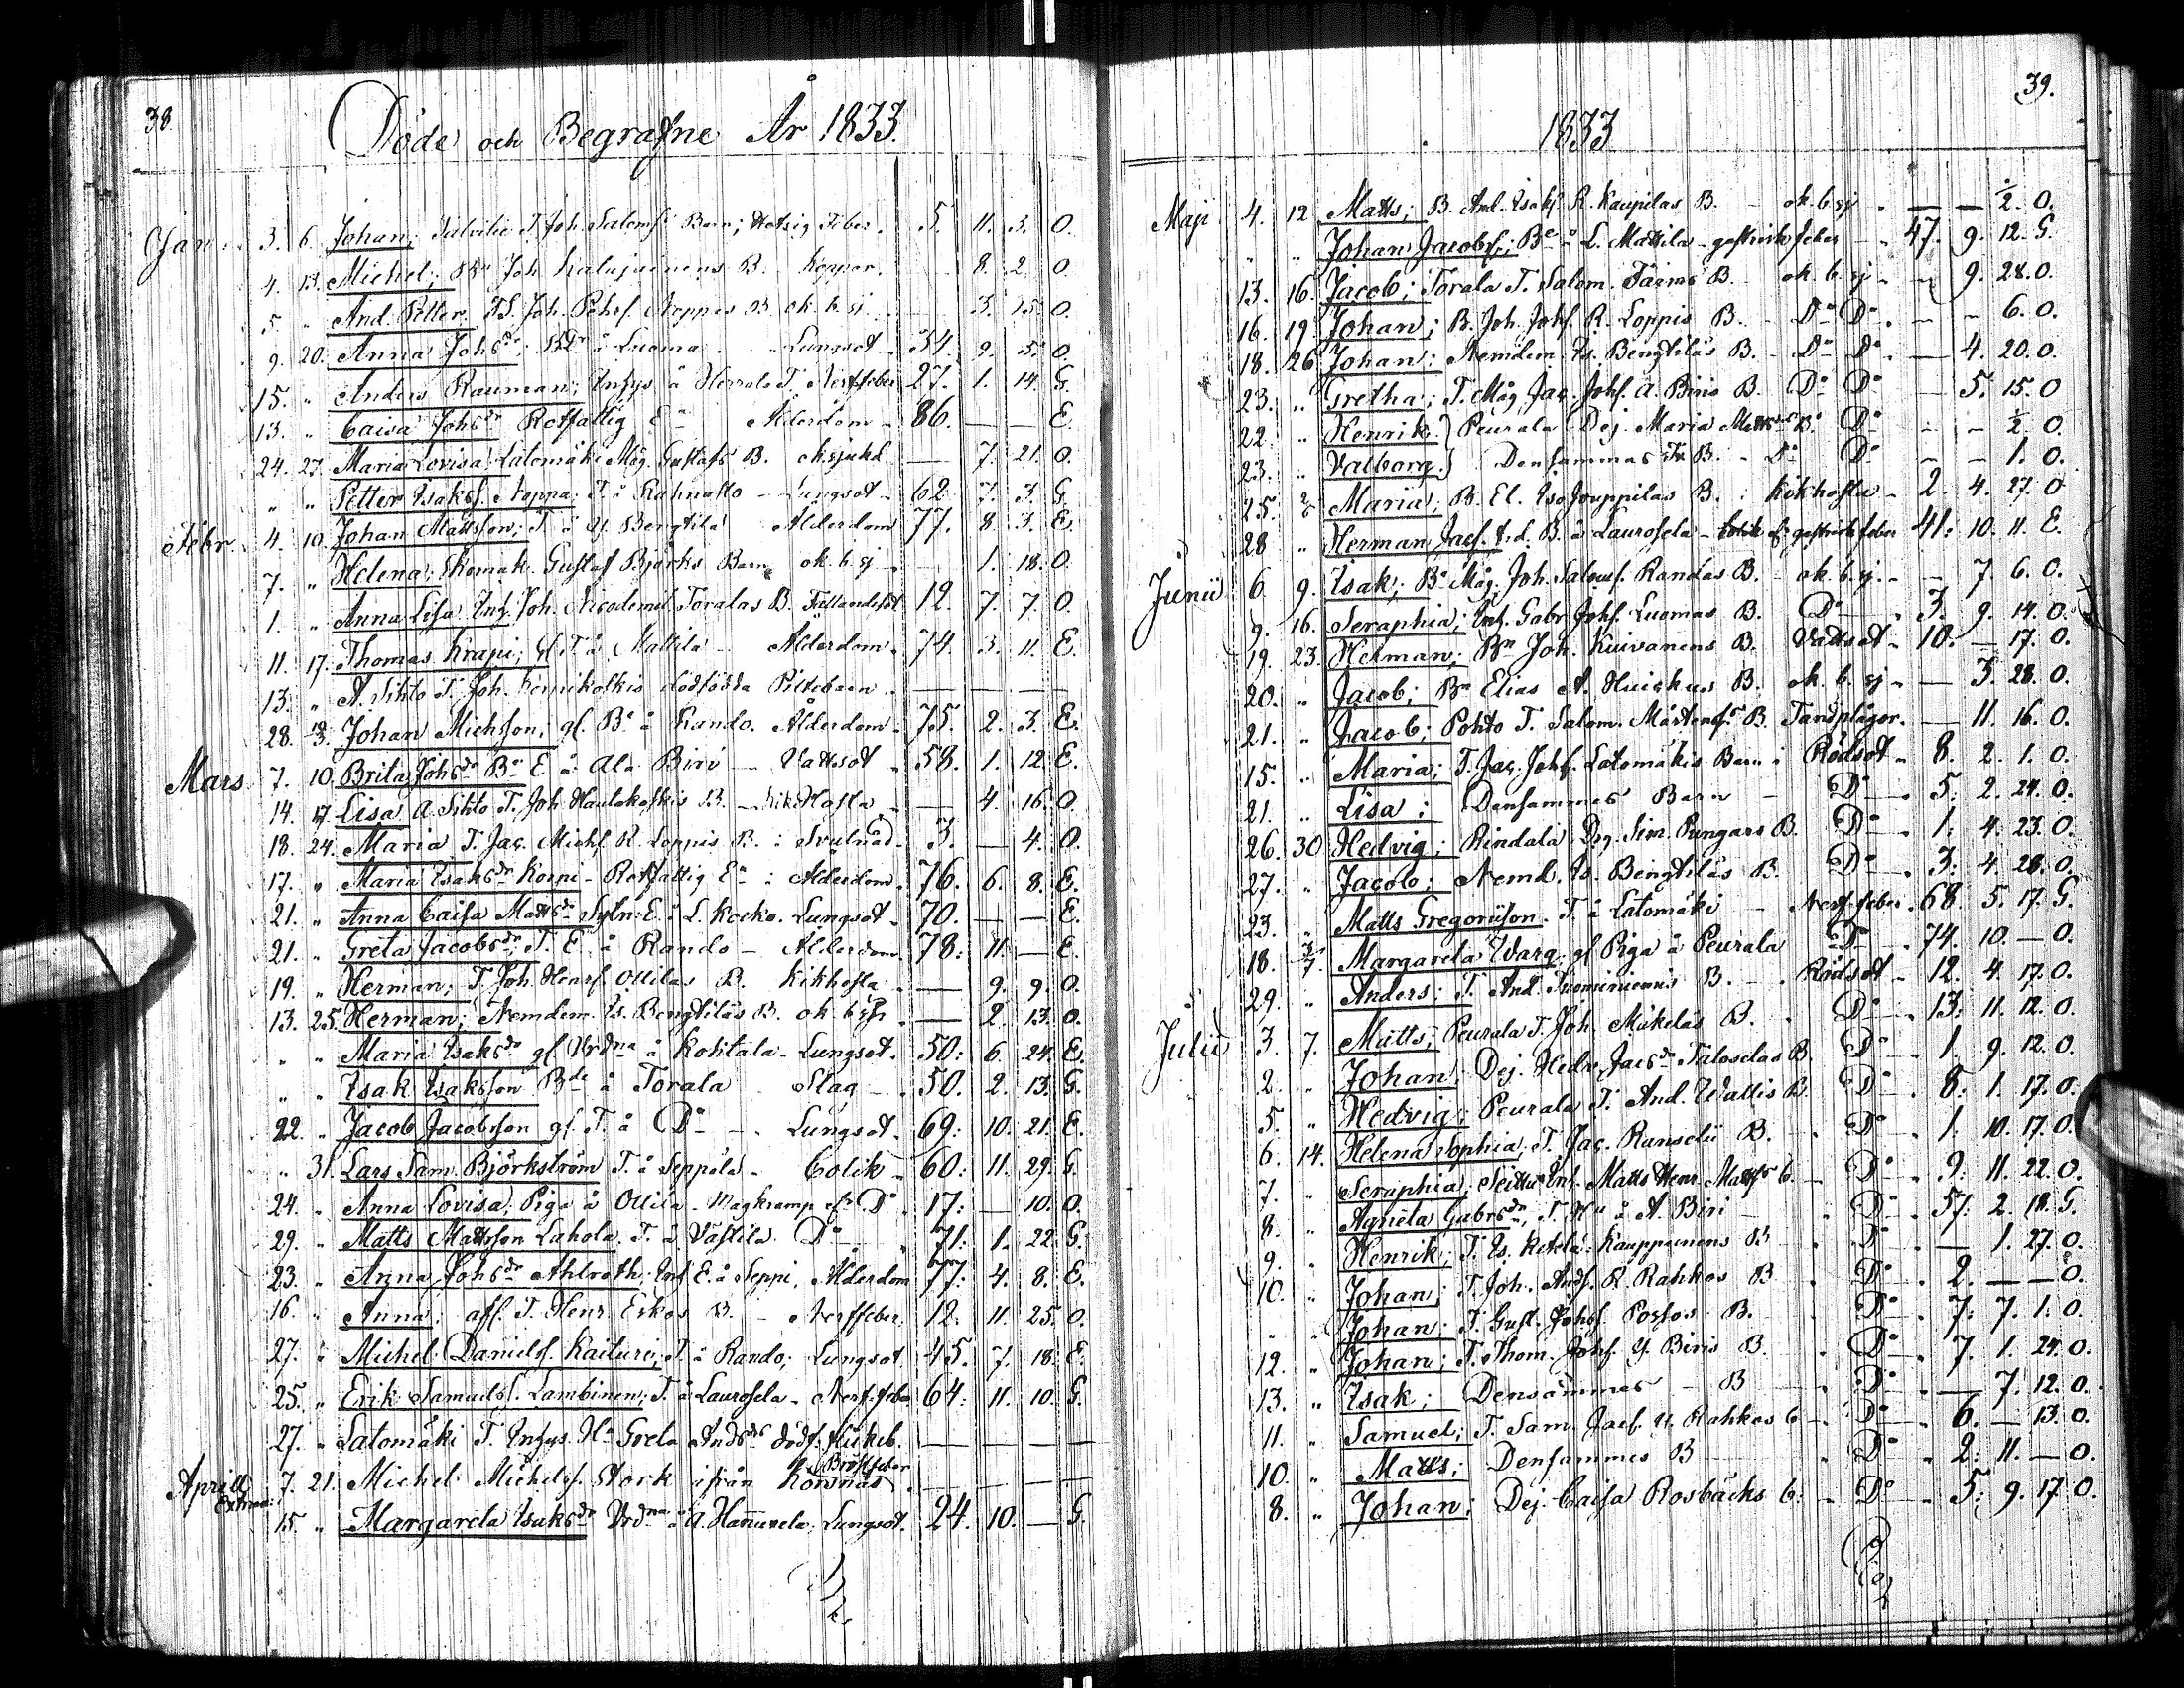 38
Döde och Begrafne År 1833.
Jan. 3. 6. Johan; T. Joh. Salomsˢ Barn; Hetsig Feber. 5. 11. 3. O.
4. 13. Michel; Joh. B. Koppor. 8. 2. O.
5. " And. Petter Joh. Pehrs. Noppos B. ok. b. sj. 3. 15. O.
9. 20. Anna Johsdr å Luoma Lungsot 34. 9. 5. O.
15. " Anders Rauman; Inhys å T. Nerffeber 27. 1. 14. G.
13. " Caisa Johsdr Rotfattig Eª Ålderdom 86. — — E.
24. 27. Maria Lovisa Latomäki Måg. Gustafs B. ok. sjukd. — 7. 21. O.
" " Petter Isakss. Noppa T. å Rahnasto Lungsot 62 7. 3. G.
Febr. 4. 10. Johan Mattsson; T. å Y. Bengtilä Ålderdom 77. 8. 3. E.
7. " Helena; Skomak. Gustaf Björks Barn ok. b. sj — 1. 18. O.
1. " Anna Lisa Inh. Joh. Toralas B. Fallandesot 12. 7. 7. O.
11. 17. Thomas Krapi; gl. T. å Mattila Ålderdom 74. 3. 11. E.
13. " A. Sihto T. Joh. dödfödda Piltebarn — — — —
28. 10/3. Johan Michsson; gl. Bᵉ å Rando. Ålderdom 75. 2. 3. E.
Mars 7. 10. Brita Johsdr Bª E å Ala Biri Vattsot 58. 1. 12. E.
14. 17. Lisa A. Sihto T. Joh. Hautakoskis B. Kikhosta — 4. 16. O.
18. 24. Maria T. Jac. Michs. R. Loppis B.: Svulnad 3. — 4. O.
17. " Maria Isaksdr Korpi - Rotfattig Eª: Ålderdom 76. 6. 8. E.
21. " Anna Caisa Mattsdr Sytn: E. å L. Kocko. Lungsot 70. — — E.
21. " Greta Jacobsdr; T. E. å Rando - Ålderdom 78: 11. — E.
19. " Herman; T. Joh. Henrs. Ottilas B. Kikhosta — 9. 9. O.
13. 25. Herman; Nemdem. Is. Bengtiläs B. ok. b. sj. — 2. 13. O.
" " Maria Isaksdr gl. å Kohtala - Lungsot. 50: 6. 24. E.
" " Isak Isaksson Bde å Torala Slag — 50. 2. 13. G.
22. " Jacob Jacobsson gl. T. å Dº - Lungsot 69: 10. 21. E.
" 31. Lars Sam. Björkström T. å Seppälä - Colik 60: 11. 29. G.
24. " Anna Lovisa; Piga å Ottila Magkramp Dº 17: — 10. O.
29. " Matts Mattsson Lahola T. å Västilä Dº 71: 1. 22. G.
23. " Anna Johsdr Ahlroth; Inh. E. å Seppi, Ålderdom 77: 4. 8. E.
16. " Anna; afl. T. Henr. Eskos B. - Nerffeber 12. 11. 25. O.
27. " Michel Daniels. Kaituri; T. å Rando; Lungsot 45. 7. 18. E.
25. " Erik Samuels. Lambinen; T. å Laurosela - Nerf. feber 64: 11. 10. G.
27. " Latomäki T. Inhys Hª Greta Andsdr dödf. — — — —
Bröstfeber
Aprill 7. 21. Michel Michels. Stork ifrån Korsnäs — — — —
Extraa:
15. " Margareta Isaksdr å A. Hannuxela Lungsot. 24. 10. — G.
39.
1833
Maji 4. 12. Matts; B. And. Isaks. R. Kaupilas B. - ok. b. sj — — ½. O.
" " Johan Jacobs.; Bᵉ å L. Mattila - gastrisk feber 47. 9. 12. G.
13. 16. Jacob; Torala T. Salom. B. ok. b. sj — 9. 28. O.
16. 19. Johan; B. Joh. Johs. R. Loppis B. Dº Dº — - 6. O.
18. 26. Johan; Nemdem. Is. Bengtiläs B. - Dº Dº — 4. 20. O.
23. " Gretha; T. Måg. Jac. Johs. A. Biris B. Dº Dº — 5. 15. O
22. " Henrik } Peurala Dej. Maria Mattsdrs B. Dº - - ½ O
23. " Valborg } Densammas B. - Dº Dº - - 1. O.
25. Maria; B. El. Jouppilas B.; Kikhosta - 2. 4. 27. O
28 " Herman Jacs. B. å Laurosela - gastrisk feber 41: 10. 11. E.
Junii 6. 9. Isak; Bª Måg. Joh. Saloms. Randas B. - ok. b. sj. — 7. 6. O.
9. 16. Seraphia; Inh. Gabr. Johs. Luomas B. Dº 3. 9. 14. O.
19. 23. Herman; Bⁿ Joh. Kuivanens B. Vattsot 10. — 17. O.
20. " Jacob; Bⁿ Elias A. B. ok. b. sj — 3. 28. O.
21. " Jacob; Pohto T. Salom. Mårtenss. B. Tandplågor. — 11. 16. O.
15. " Maria; T. Jac. Johs. Latomäkis Barn: Rödsot 8. 2. 1. O.
21. " Lisa; Densammes Barn - Dº 5: 2. 24. O.
26. 30 Hedvig; Rindala Dg. Sim. Pungars B. Dº 1: 4. 23. O.
27. " Jacob; Nemd. Is. Bengtiläs B. Dº 3: 4. 28. O.
23. " Matts Gregoriison T. å Latomäki - Nerf. feber 68. 5. 17. G.
18. Margareta Warg; gl Piga å Peurala Dº 74. 10. — O.
29. " Anders; T. And. B. Rödsot 12. 4. 17. O.
Julii 3. 7. Matts; Peurala T. Joh. Mäkeläs B. Dº 13: 11. 12. O.
2. " Johan; Dej. Hedv. Jacsdr Taloselas B. Dº 1. 9. 12. O.
5. " Hedvig; Peurala T. And. Wallis B. Dº 8. 1. 17. O.
6. 14. Helena Sophia; T. Jac. B. Dº 1. 10. 17. O.
7. " Seraphia; Inh. Matts Henr. B. Dº 9. 11. 22. O.
8. " Agneta Gabrsdr, T. Hu å A. Biri - Dº 57: 2. 18. G.
9. " Henrik; T. Is. Kauppinens B. Dº — 1. 27. O.
10. " Johan; T. Joh. Ands. R. Rahkos B. Dº 2. — — O.
" " Johan; T. Gust. Johs. B. Dº 7: 7. 1. O.
12. " Johan; T. Thom. Johs. Y. Biris B. Dº 7. 1. 24. O.
13. " Isak; Densammes - B Dº — 7. 12. O.
11. " Samuel; T. Sam. Jacs. Y. Rahkos B - Dº 6. — 13. O.
10. " Matts; Densammes B Dº 2: 11. — O.
8. " Johan; Dej. Caisa Rosbäcks B. - Dº 5: 9. 17. O.